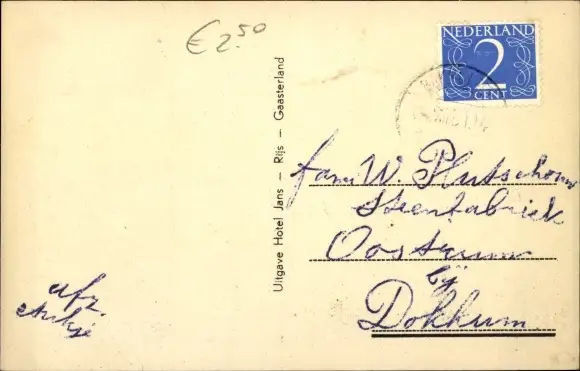 € 2.50
NEDERLAND
2
CENT
Uitgave Hotel Jans - Rijs - Gaasterland
fam W.
Steenfabriek
Oostrum
bij
Dokkum
afz.